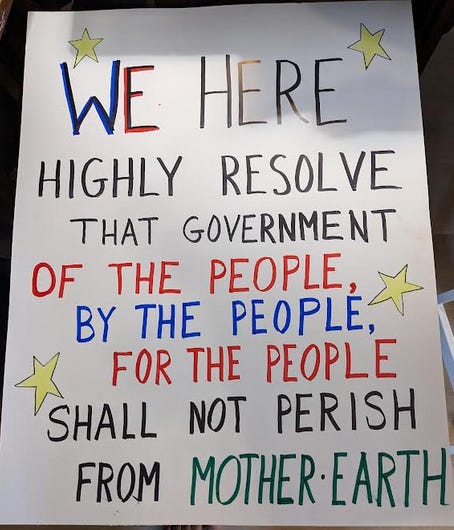 WE HERE
HIGHLY RESOLVE
THAT GOVERNMENT
OF THE PEOPLE,
BY THE PEOPLE,
FOR THE PEOPLE
SHALL NOT PERISH
FROM MOTHER·EARTH